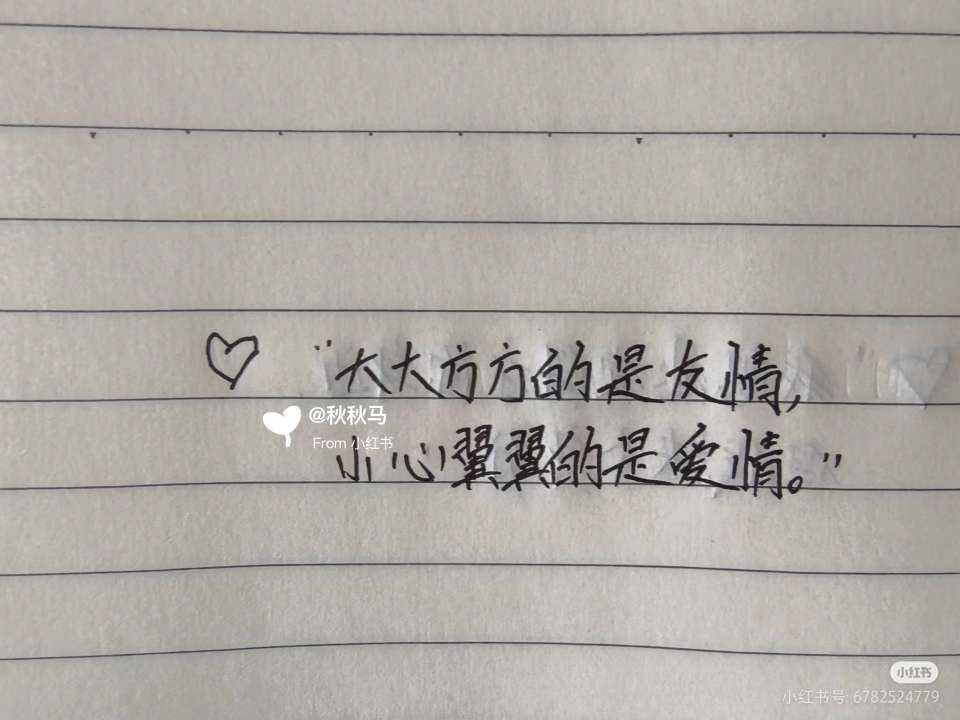 “大大方方的是友情,
@秋秋马
From 小红书
小心翼翼的是爱情。”
小红书
小红书号: 6782524779